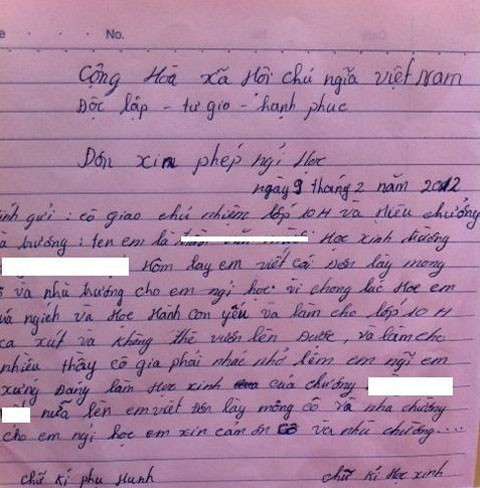 No.
Cộng Hoà xã Hội chủ ngĩa việt Nam
Độc lập - tự gio - hạnh phuc
Đơn xin phép ngỉ Học
ngày 9 tháng 2 năm 2012
ính gửi: cô giao chủ nhiệm lớp 10H và Hiêu chưởng
à trường: ten em là Học xinh trường
Hôm lay em viết cái Đơn lày mong
và nhà trường cho em ngỉ học vì chong lúc Học em
ngịch và Học Hành con yếu và làm cho lớp 10 H
ca xút và không thể vươn lên Được, và làm cho
nhiều thầy cô gia phải nhác nhở lêm em ngĩ em
xứng Đáng làm Học xinh của chường
nữa lên em viết Đơn lay mông cô và nha chường
cho em ngỉ học em xin cảm ơn cô và nhà chường...
chữ kí phu Hunh chữ kí Học xinh